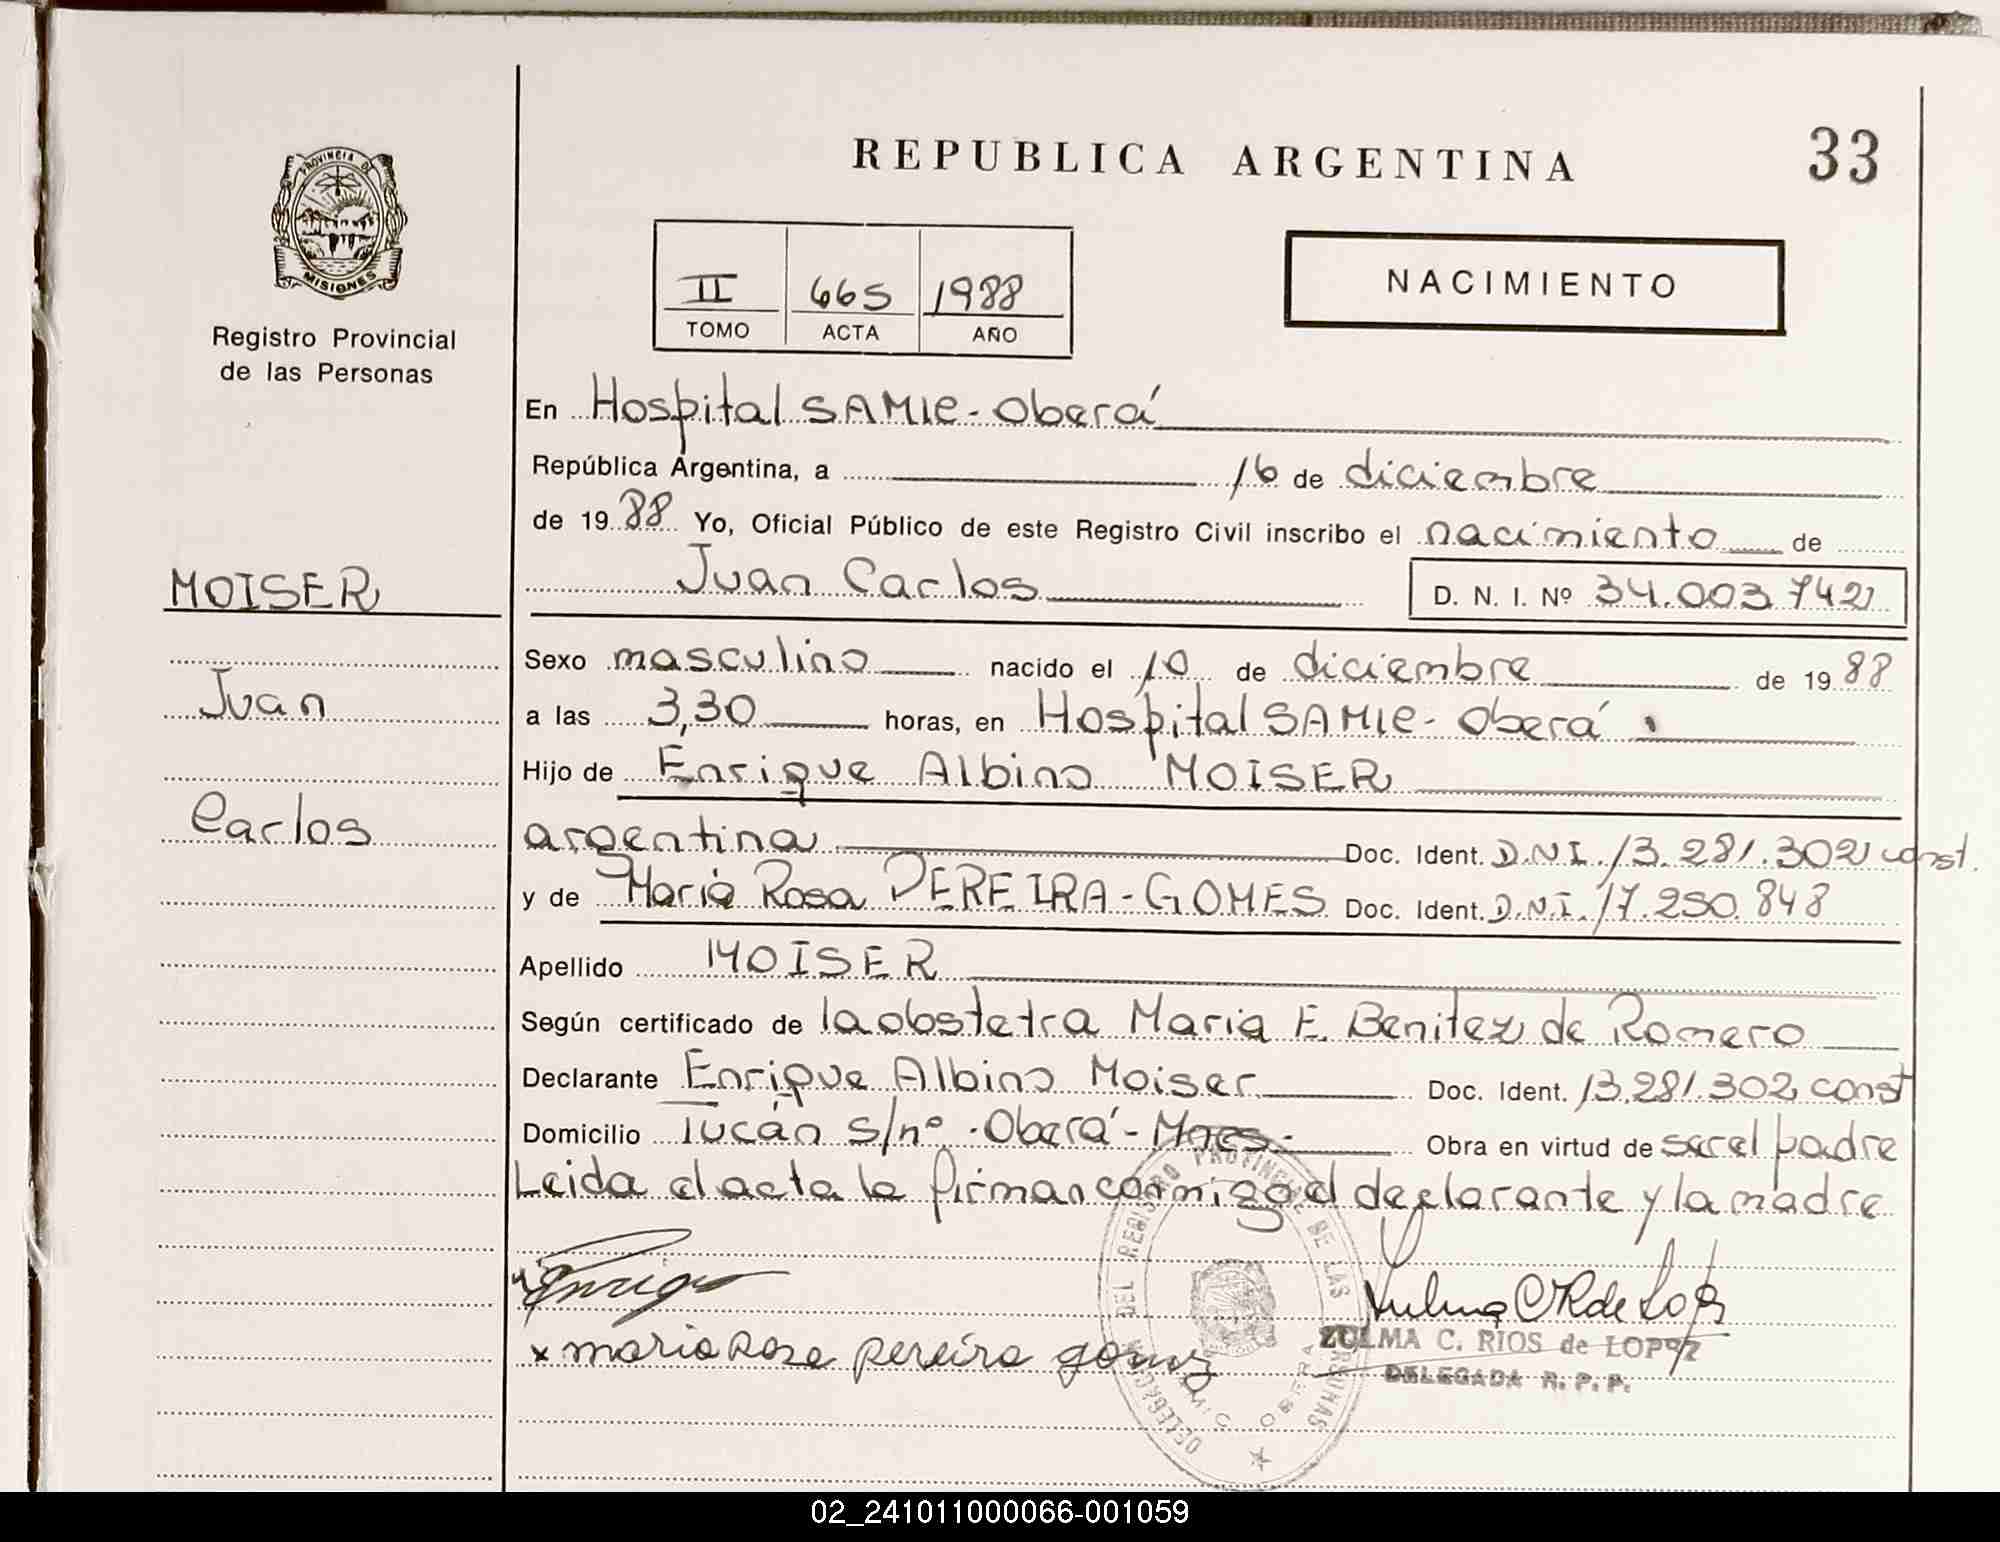 REPUBLICA ARGENTINA
33
PROVINCIA DE
MISIONES
Registro Provincial
de las Personas
II 665 1988
TOMO ACTA AÑO
NACIMIENTO
En Hospital SAMIC - Oberá
República Argentina, a 16 de diciembre
de 1988 Yo, Oficial Público de este Registro Civil inscribo el nacimiento de
Juan Carlos D. N. I. Nº 34.003.742
MOISER
Juan
Carlos
Sexo masculino nacido el 10 de diciembre de 1988
a las 3,30 horas, en Hospital SAMIC - Oberá
Hijo de Enrique Albino MOISER
argentina Doc. Ident. D.N.I. 13.281.302 const.
y de Maria Rosa PEREIRA-GOMES Doc. Ident. D.N.I. 17.250.848
Apellido MOISER
Según certificado de la obstetra Maria E. Benitez de Romero
Declarante Enrique Albino Moiser Doc. Ident. 13.281.302 const
Domicilio Tucán s/nº - Oberá - Mnes - Obra en virtud de ser el padre
Leida el acta la firman conmigo el declarante y la madre
x maria Rosa pereira gomez
ZULMA C. RIOS de LOPEZ
DELEGADA R. P. P.
DELEGACION DEL REGISTRO PROVINCIAL DE LAS PERSONAS
OBERA
02_241011000066-001059